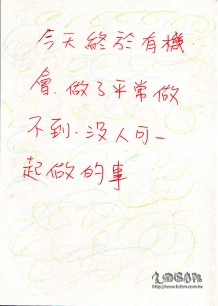 今天終於有機
會.做了平常做
不到.沒人可一
起做的事